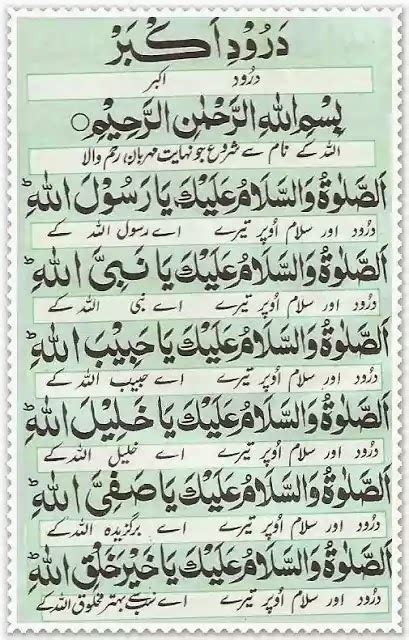 دَرُوْدِ اَكْبَرْ
درُود اکبر
بِسْمِ اللهِ الرَّحْمٰنِ الرَّحِيْمِ ○
اللہ کے نام سے شروع جو نہایت مہربان رحم والا
اَلصَّلٰوةُ وَالسَّلَامُ عَلَيْكَ يَا رَسُوْلَ اللهِ ؕ
درُود اور سلام اُوپر تیرے اے رسول اللہ کے
اَلصَّلٰوةُ وَالسَّلَامُ عَلَيْكَ يَا نَبِىَّ اللهِ ؕ
درُود اور سلام اُوپر تیرے اے نبی اللہ کے
اَلصَّلٰوةُ وَالسَّلَامُ عَلَيْكَ يَا حَبِيْبَ اللهِ ؕ
درُود اور سلام اُوپر تیرے اے حبیب اللہ کے
اَلصَّلٰوةُ وَالسَّلَامُ عَلَيْكَ يَا خَلِيْلَ اللهِ ؕ
درُود اور سلام اُوپر تیرے اے خلیل اللہ کے
اَلصَّلٰوةُ وَالسَّلَامُ عَلَيْكَ يَا صَفِىَّ اللهِ ؕ
درُود اور سلام اُوپر تیرے اے برگزیدہ اللہ کے
اَلصَّلٰوةُ وَالسَّلَامُ عَلَيْكَ يَا خَيْرَ خَلْقِ اللهِ ؕ
درُود اور سلام اُوپر تیرے اے سب سے بہتر مخلوق اللہ کے